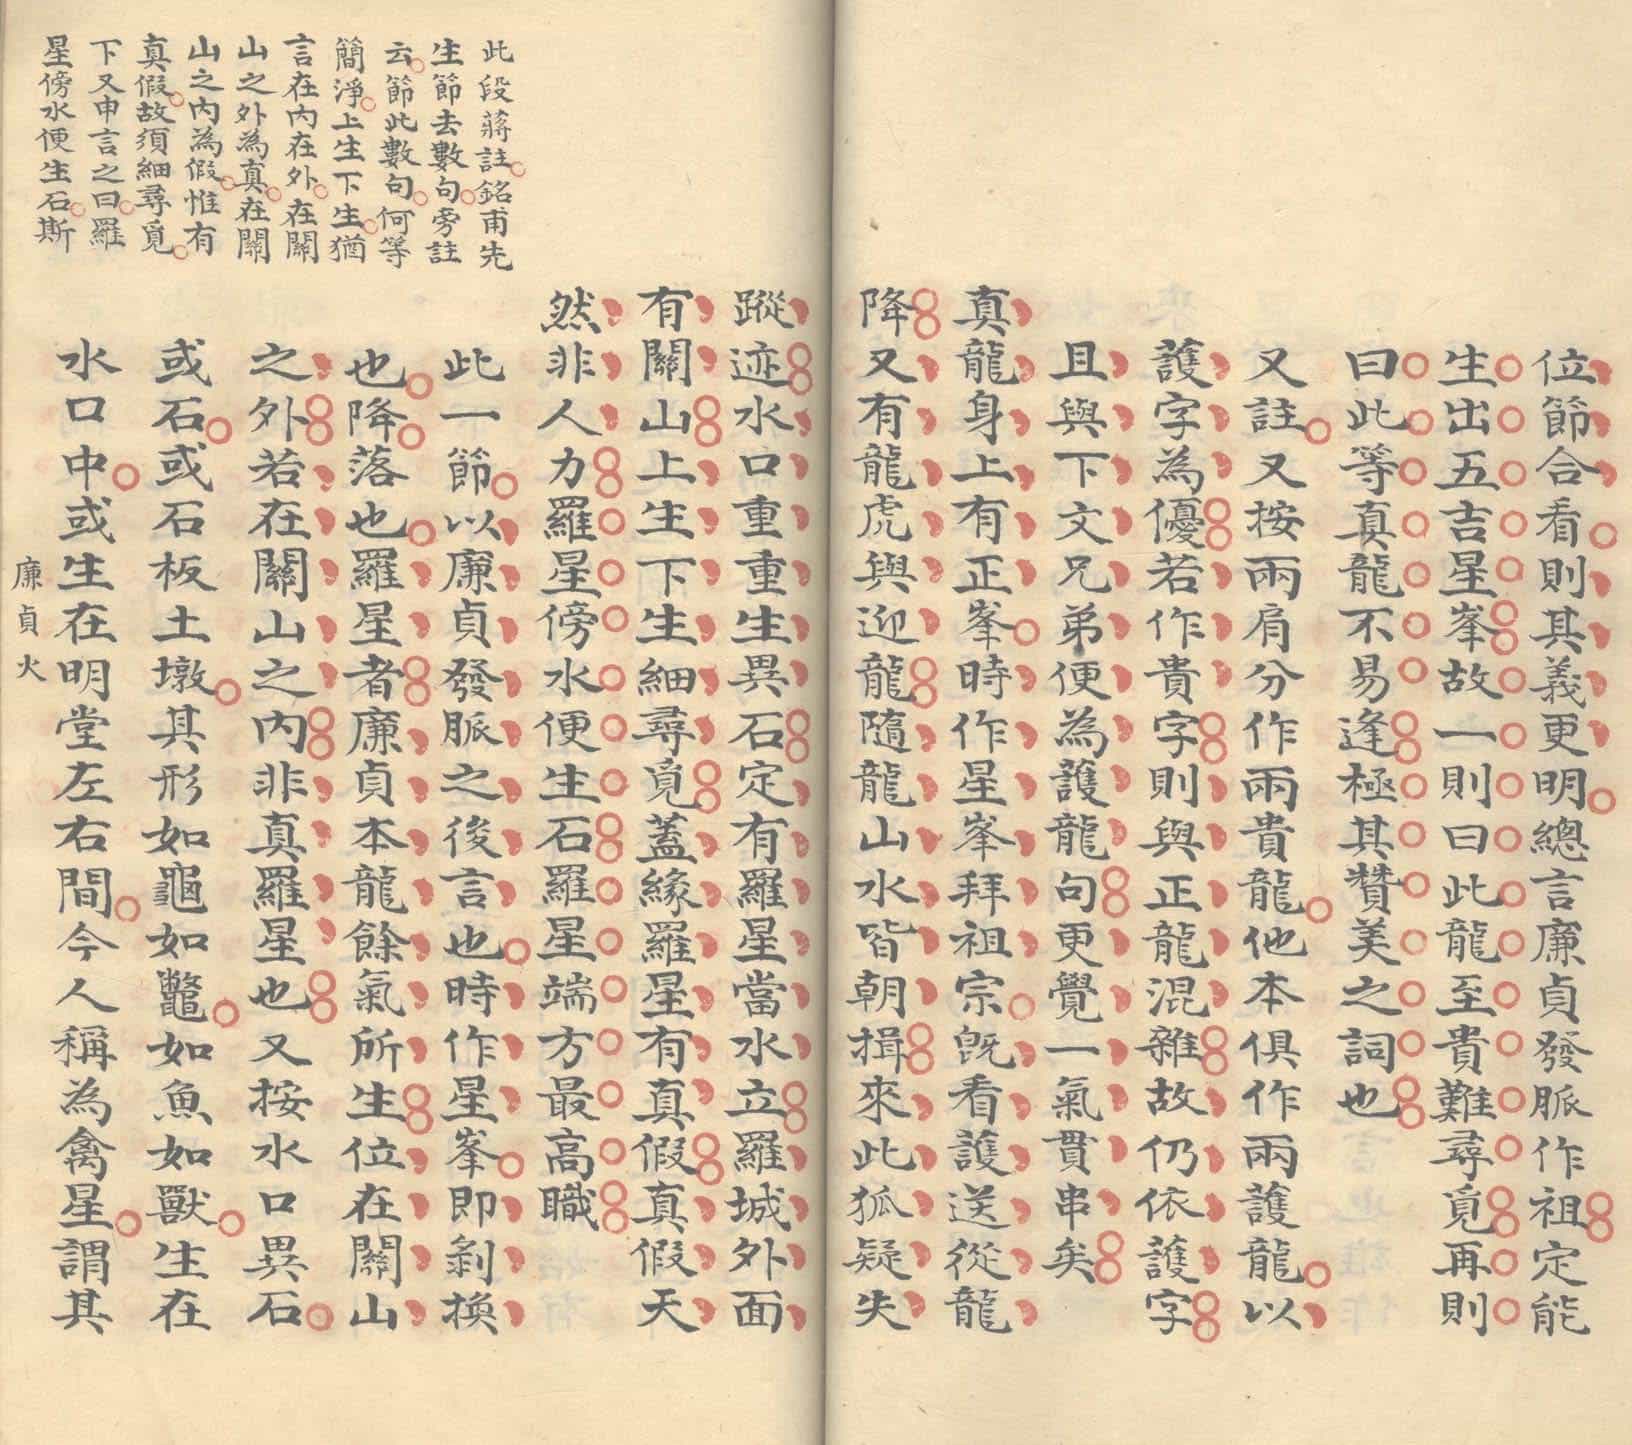 位節合看則其義更明總言廉貞發脈作祖定能
生出五吉星峯故一則曰此龍至貴難尋覓再則
曰此等真龍不易逢極其贊美之詞也
又註又按兩肩分作兩貴龍他本俱作兩護龍以
護字為優若作貴字則與正龍混雜故仍依護字
且與下文兄弟便為護龍句更覺一氣貫串矣
真龍身上有正峯時作星峯拜祖宗旣看護送從龍
降又有龍虎與迎龍隨龍山水皆朝揖來此狐疑失
蹤迹水口重重生異石定有羅星當水立羅城外面
有關山上生下生細尋覓蓋緣羅星有真假真假天
然非人力羅星傍水便生石羅星端方最高職
此一節以廉貞發脈之後言也時作星峯即剝換
也降落也羅星者廉貞本龍餘氣所生位在關山
之外若在關山之內非真羅星也又按水口異石
或石或石板土墩其形如龜如鼈如魚如獸生在
水口中或生在明堂左右間今人稱為禽星謂其
此段蔣註銘甫先
生節去數句旁註
云節此數句何等
簡淨上生下生猶
言在內在外在關
山之外為真在關
山之內為假惟有
真假故須細尋覓
下又申言之曰羅
星傍水便生石斯
廉貞火